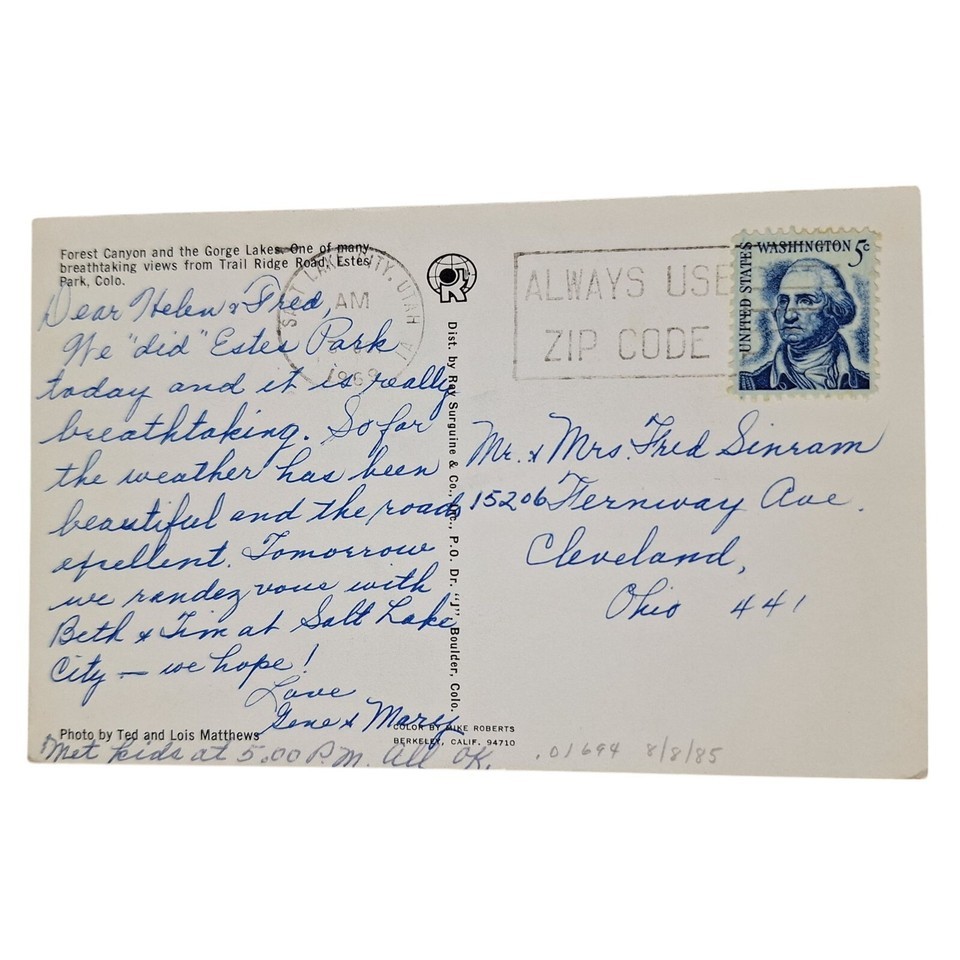 Forest Canyon and the Gorge Lakes. One of many
breathtaking views from Trail Ridge Road, Estes
Park, Colo.
Dear Helen & Fred,
We "did" Estes Park
today and it is really
breathtaking. So far
the weather has been
beautiful and the road
exellent. Tomorrow
we randez vous with
Beth & Tim at Salt Lake
City — we hope!
Love
Gene & Mary
Photo by Ted and Lois Matthews
Met kids at 5:00 P.M. All OK.
SALT LAKE CITY, UTAH
AM
1969
Dist. by Roy Surguine & Co., Inc., P.O. Dr. "J", Boulder, Colo.
COLOR BY MIKE ROBERTS
BERKELEY, CALIF. 94710
ALWAYS USE
ZIP CODE
UNITED STATES
WASHINGTON 5c
Mr. & Mrs. Fred Sinram
15206 Fernway Ave.
Cleveland,
Ohio 441
.01694 8/8/85